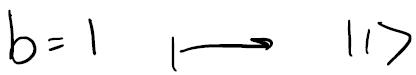 b = 1 ↦ |1>